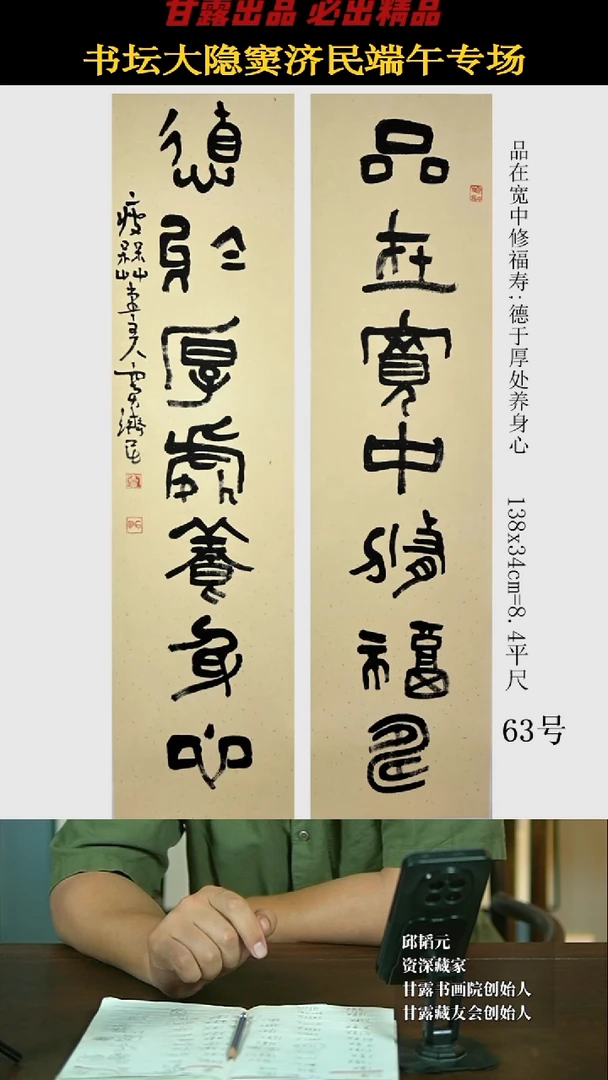 甘露出品 必出精品
书坛大隐窦济民端午专场
品在宽中修福寿:德于厚处养身心
138x34cm=8.4平尺
63号
品在寬中修福寿
德於厚處養身心
邱韬元
资深藏家
甘露书画院创始人
甘露藏友会创始人